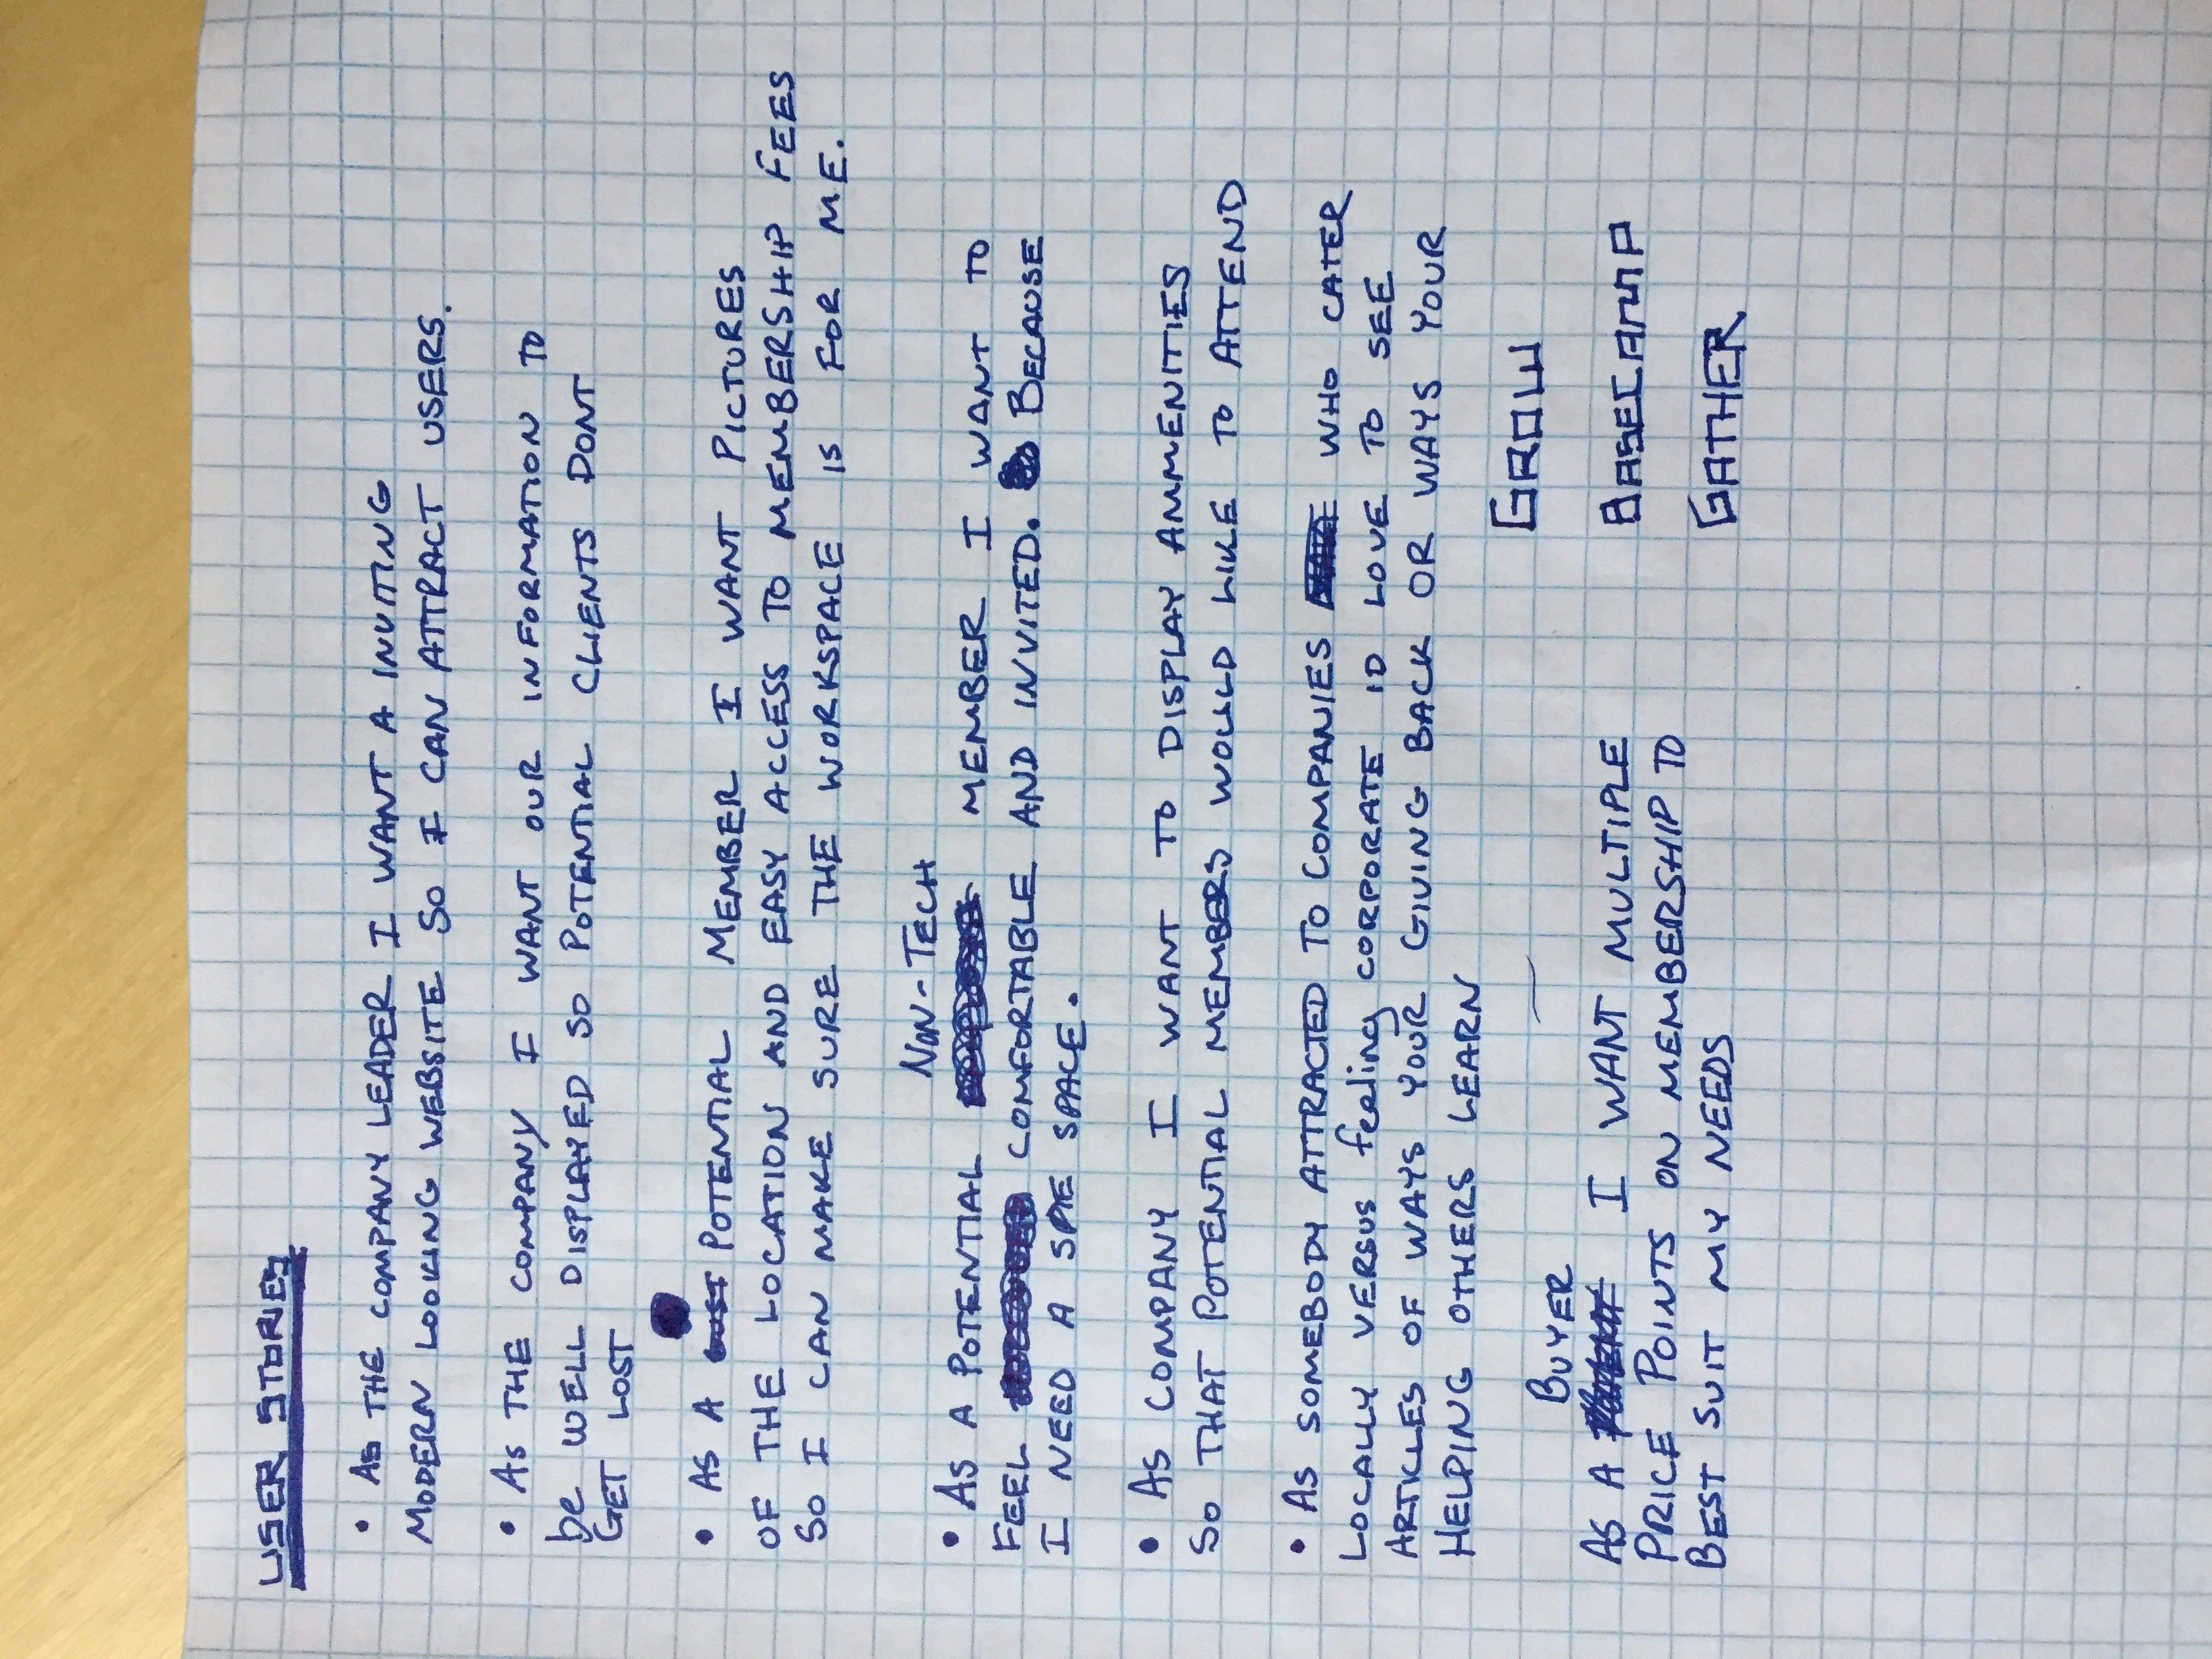 USER STORIES
• AS THE COMPANY LEADER I WANT A INVITING
MODERN LOOKING WEBSITE SO I CAN ATTRACT USERS.
• AS THE COMPANY I WANT OUR INFORMATION TO
be WELL DISPLAYED SO POTENTIAL CLIENTS DONT
GET LOST
• AS A POTENTIAL MEMBER I WANT PICTURES
OF THE LOCATION AND EASY ACCESS TO MEMBERSHIP FEES
SO I CAN MAKE SURE THE WORKSPACE IS FOR ME.
NON-TECH
• AS A POTENTIAL MEMBER I WANT TO
FEEL COMFORTABLE AND INVITED. BECAUSE
I NEED A SPACE.
• AS COMPANY I WANT TO DISPLAY AMMENITIES
SO THAT POTENTIAL MEMBERS WOULD LIKE TO ATTEND
• AS SOMEBODY ATTRACTED TO COMPANIES WHO CATER
LOCALLY VERSUS feeling CORPORATE ID LOVE TO SEE
ARTICLES OF WAYS YOUR GIVING BACK OR WAYS YOUR
HELPING OTHERS LEARN
GROW
BUYER
AS A I WANT MULTIPLE
BASECAMP
PRICE POINTS ON MEMBERSHIP TO
BEST SUIT MY NEEDS
GATHER